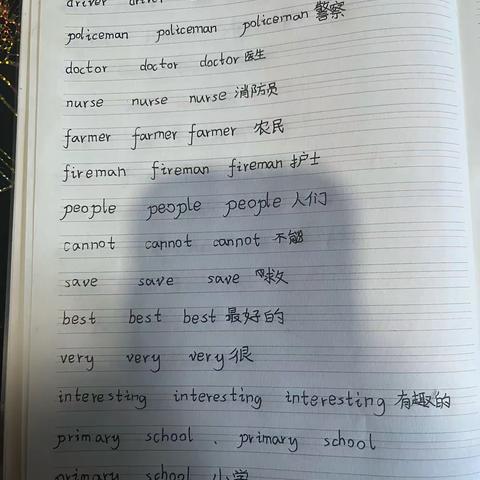 driver
policeman policeman policeman 警察
doctor doctor doctor 医生
nurse nurse nurse 消防员
farmer farmer farmer 农民
fireman fireman fireman 护士
people people people 人们
cannot cannot cannot 不能
save save save 救
best best best 最好的
very very very 很
interesting interesting interesting 有趣的
primary school 、 primary school
primary school 小学